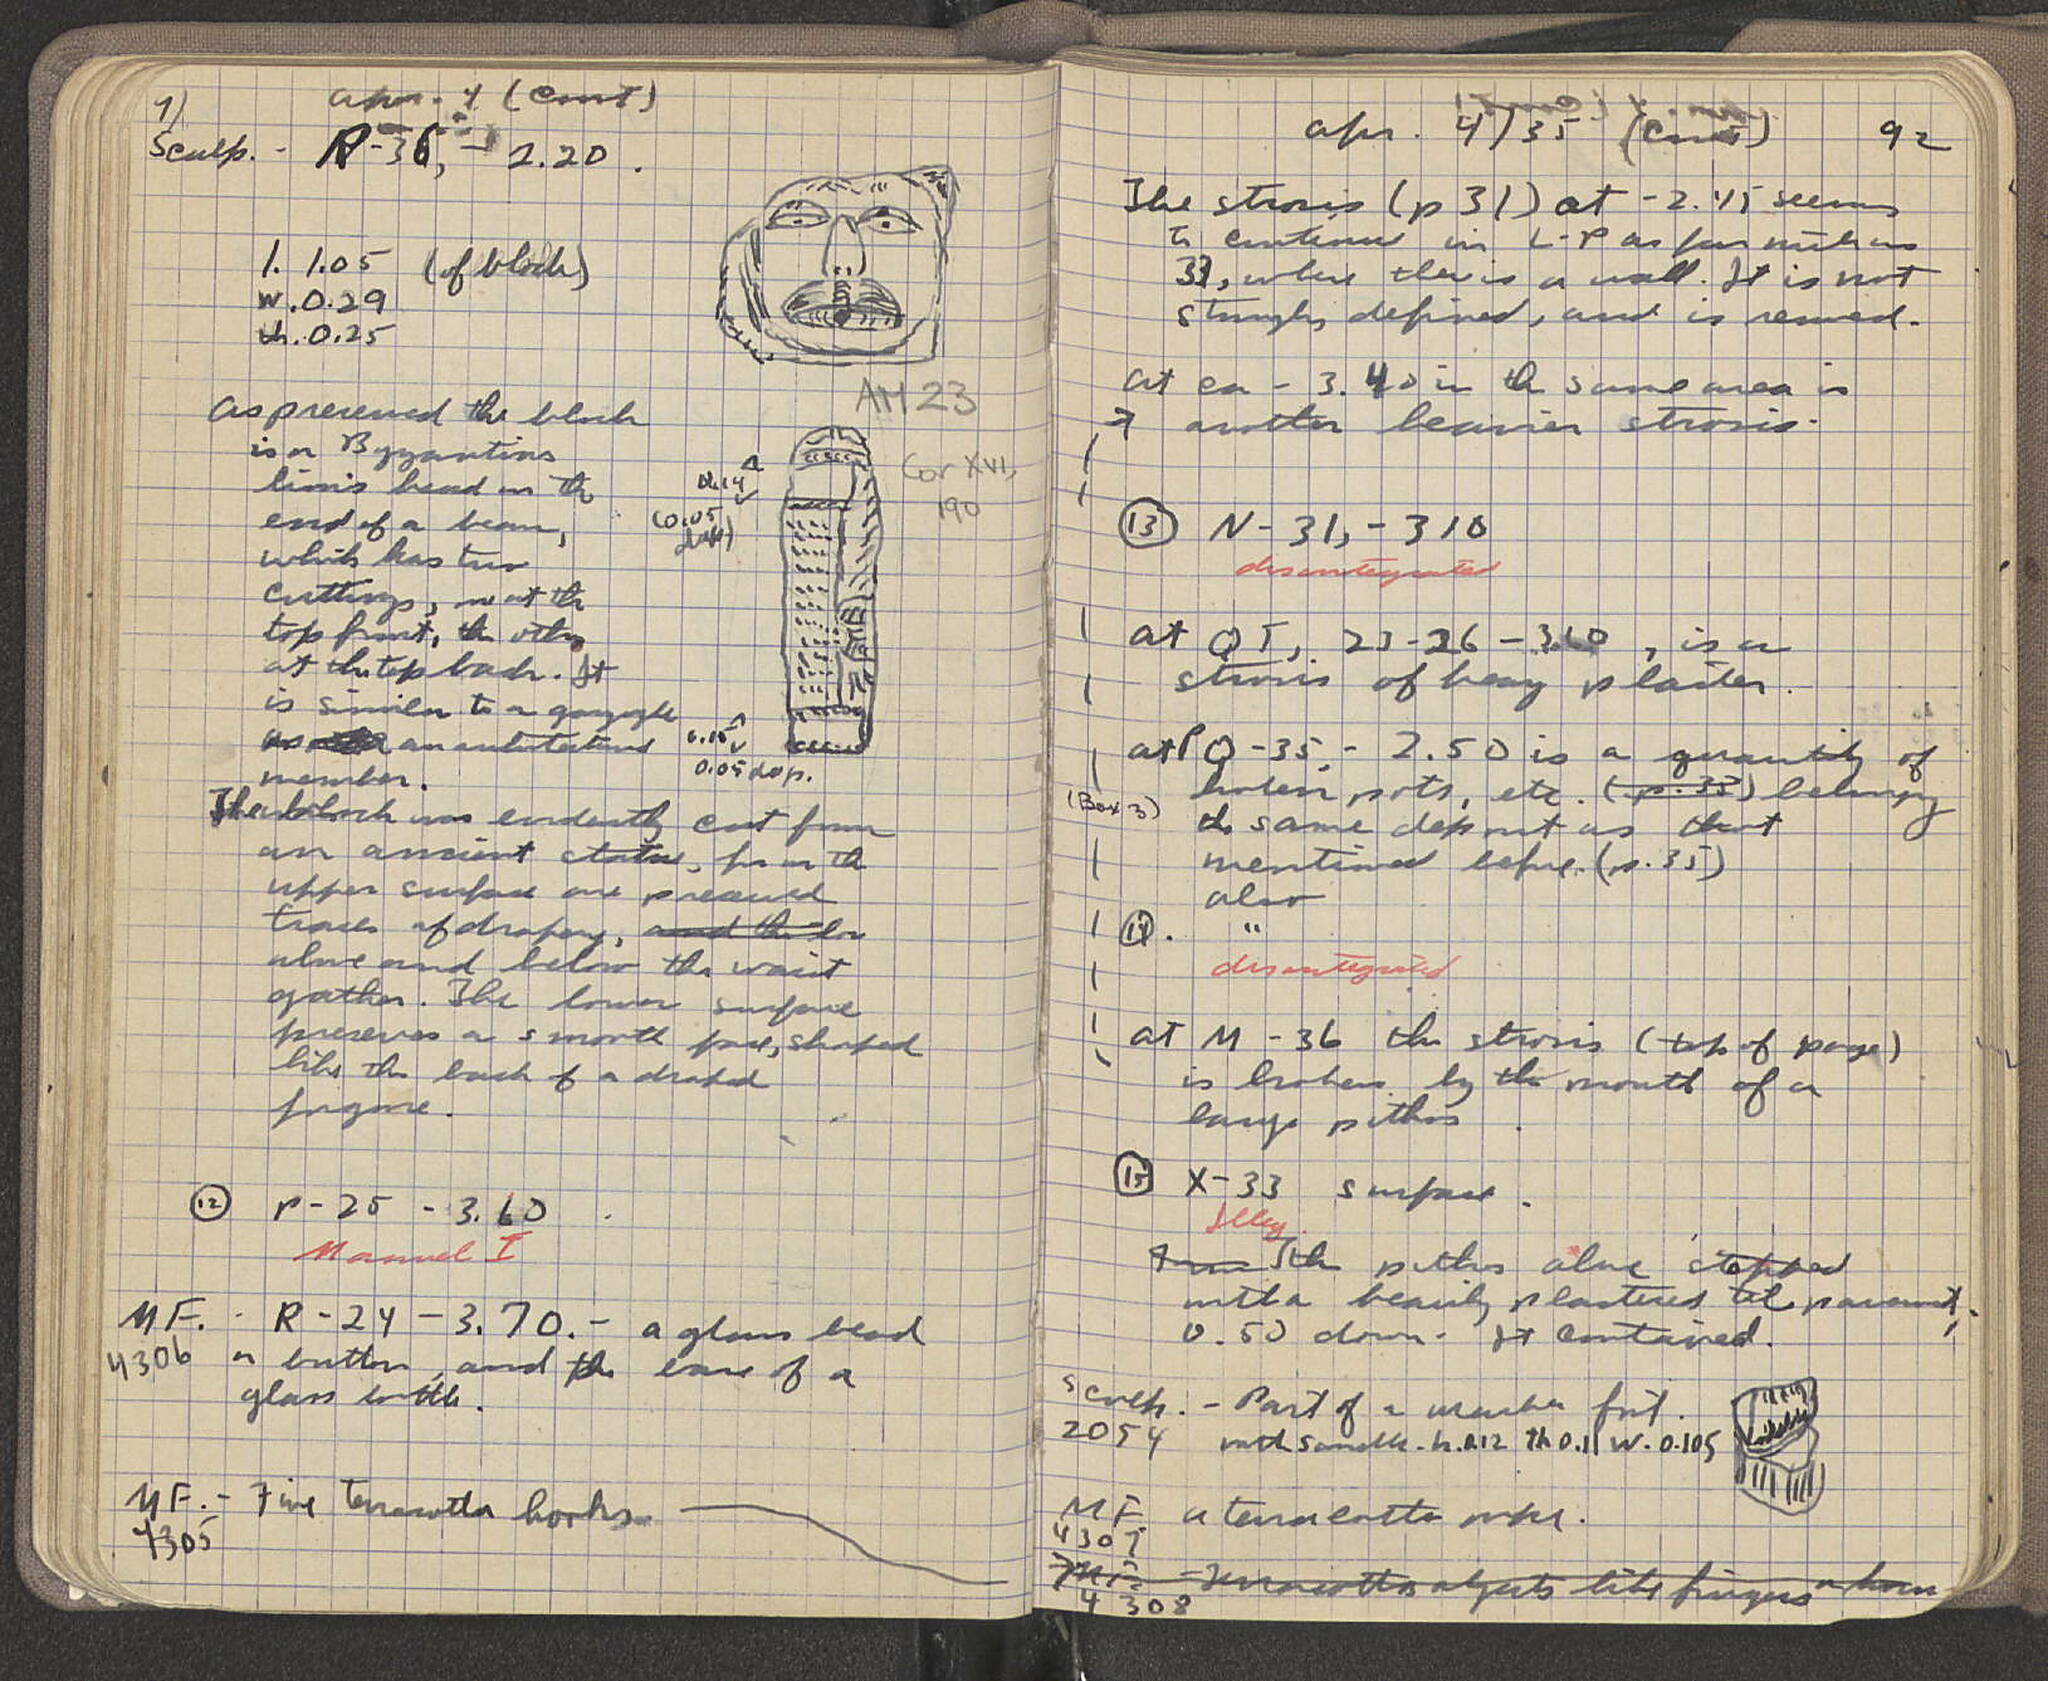 91
Apr. 4 (Cont)
Sculp. - R-36, - 2.20.
l. 1.05 (of block)
w. 0.29
th. 0.25
AH 23
As preserved the block
is a Byzantine
lion's head on the
end of a beam,
which has two
cuttings, one at the
top front, the other
at the top back. It
is similar to a gargoyle
an architectural
member.
(0.05
deep)
Cor XVI,
190
0.05 deep.
The block was evidently cut from
an ancient statue, for on the
upper surface are preserved
traces of drapery, and the lo
above and below the waist
gather. The lower surface
preserves a smooth face, shaped
like the back of a draped
figure.
(12) P-25 - 3.60
Manuel I
MF. - R-24 - 3.70. - a glass bead
4306 or button, and the base of a
glass bottle.
MF. - Five terracotta hooks
4305
Apr. 4/35 (Cont) 92
The strosis (p 31) at -2.45 seems
to continue in L-P as far north as
33, where there is a wall. It is not
strongly defined, and is removed.
At ca - 3.40 in the same area is
another heavier strosis.
(13) N-31, -310
disintegrated
At QT, 23-26 - 3.60, is a
strosis of heavy plaster.
At PQ-35, - 2.50 is a quantity of
broken pots, etc. (p. 33) belonging
(Box 3) to same deposit as that
mentioned before. (p. 35)
also
(14). "
disintegrated
At M-36 the strosis (top of page)
is broken by the mouth of a
large pithos.
(15) X-33 surface.
Illeg.
The pithos above stopped
with a heavily plastered tile pavement,
0.50 down. It contained.
Sculp. - Part of a marble foot.
2054 with sandle. h. 0.12 th 0.11 w. 0.105
MF a terracotta
4307
MF. - Terracotta objects like fingers or horn
4308